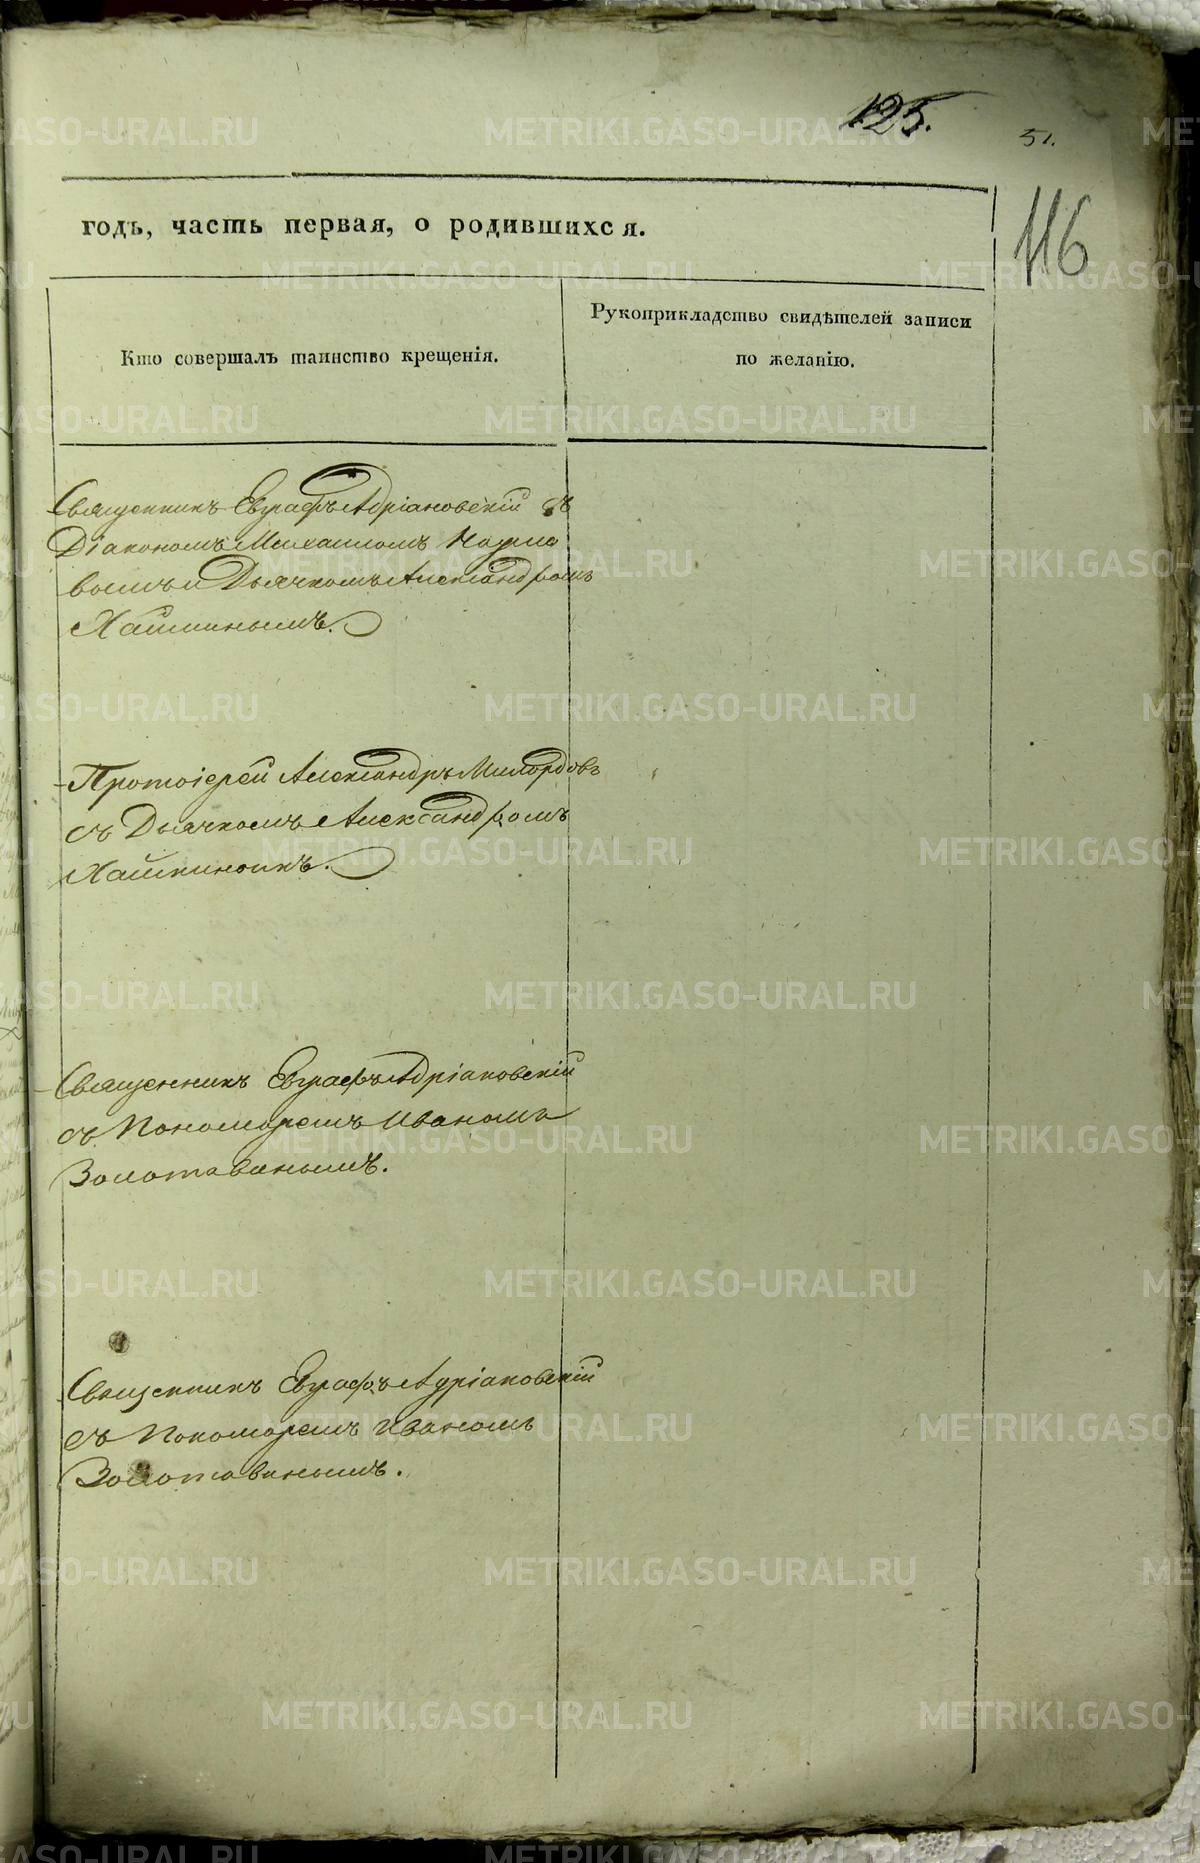 125.
51.
116
годъ, часть первая, о родившихся.
Кто совершалъ таинство крещенія.
Рукоприкладство свидѣтелей записи
по желанію.
Священникъ Евграфъ Адріановскій съ
Діакономъ Михаиломъ Наумо
вымъ и Дьячкомъ Александромъ
Хашкинымъ.
Протоіерей Александръ Милордовъ
съ Дьячкомъ Александромъ
Хашкинымъ.
Священникъ Евграфъ Адріановскій
съ Пономаремъ Иваномъ
Золотавинымъ.
Священникъ Евграфъ Адріановскій
съ Пономаремъ Иваномъ
Золотавинымъ.
METRIKI.GASO-URAL.RU